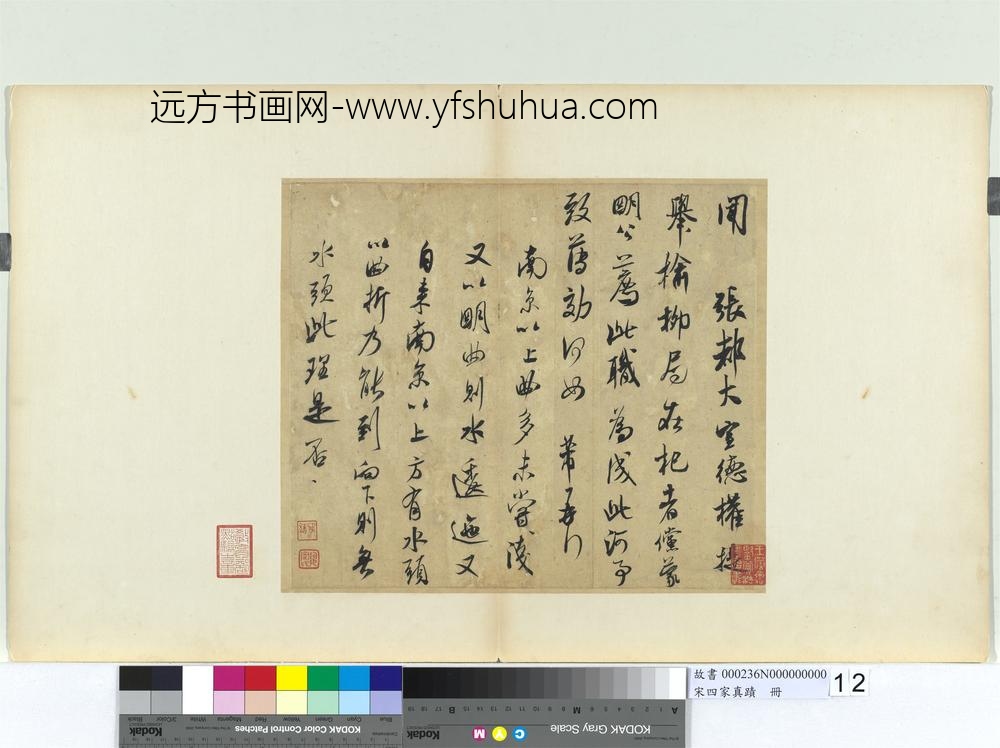 远方书画网-www.yfshuhua.com
聞 張都大宣德權提
舉榆柳局在杞者儻蒙
明公薦此職為成此河事
致薄効何如 芾再行
南京以上曲多未嘗淺
又以明曲則水逶迤又
自來南京以上方有水頭
以曲折乃能到向下則無
水頭此理是否
故書 000236N000000000
宋四家真蹟 冊
12
Blue
Cyan
Green
Yellow
Red
Magenta
White
3/Color
Black
KODAK Color Control Patches
Kodak
A 1 2 3 4 5 6 M 8 9 10 11 12 13 14 15 B 17 18 19
KODAK Gray Scale
C Y M
Kodak